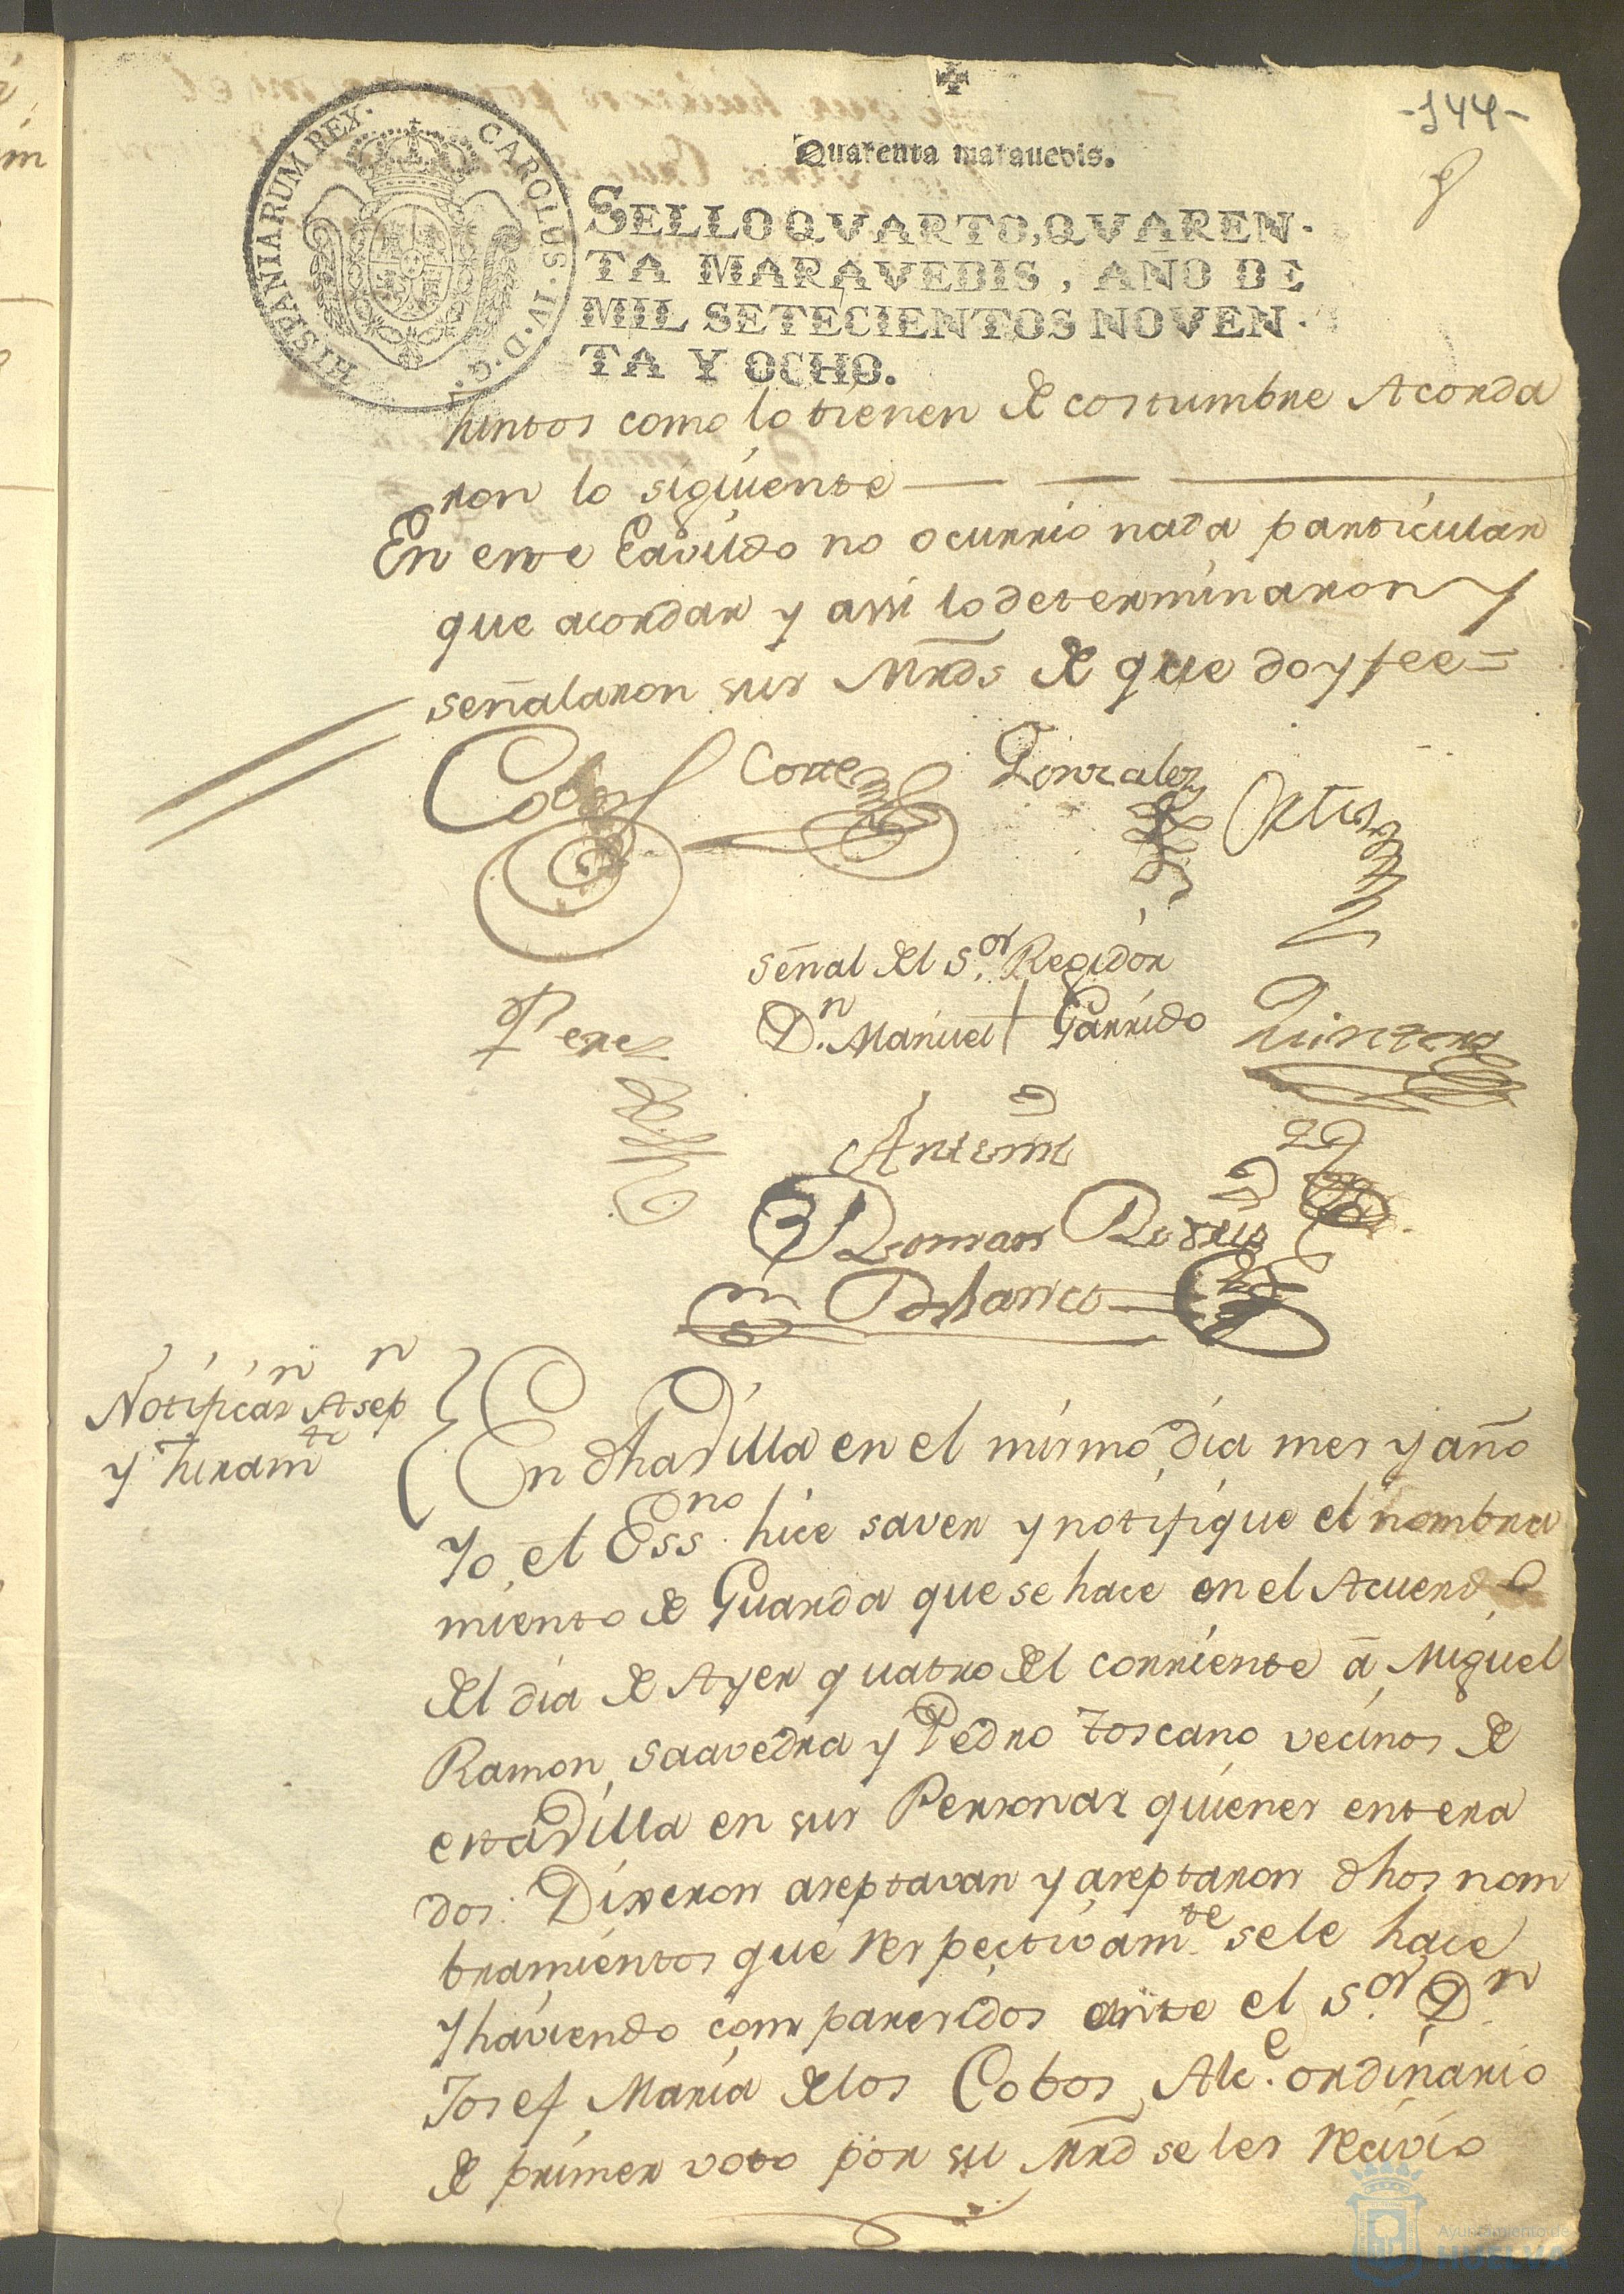 -144-
Quarenta maravedis.
SELLO QVARTO, QVAREN-
TA MARAVEDIS, AÑO DE
MIL SETECIENTOS NOVEN-
TA Y OCHO.
CAROLUS·IV·D·G· HISPANIARUM REX·
Juntos como lo tienen de costumbre Acorda
ron lo siguiente
En este Cavildo no ocurrio nada particular
que acordar y assi lo determinaron y
señalaron sus Mrds de que doy fee=
Cobos Cortes Gonzalez Ortis
Señal del S.or Regidor
Perez D.n Manuel + Garrido Quintero
Antemi
Roman
Blanco
Notificaz.n Asep.n
y Juram.to
En dha Villa en el mismo dia mes y año
Yo el Ess.no hice saver y notifique el nombra
miento de Guarda que se hace en el Acuerdo
del dia de Ayer quatro del corriente â Miguel
Ramon Saavedra y Pedro Toscano vecinos de
esta Villa en sus Personas quienes entera
dos: Dixeron aseptavan y aseptaron dhos nom
bramientos que respectivam.te sele hace
y haviendo comparesidos ante el S.or D.n
Josef Maria delos Cobos Alc.e ordinario
de primer voto por su Mrd se les recivio
Ayuntamiento de
HUELVA